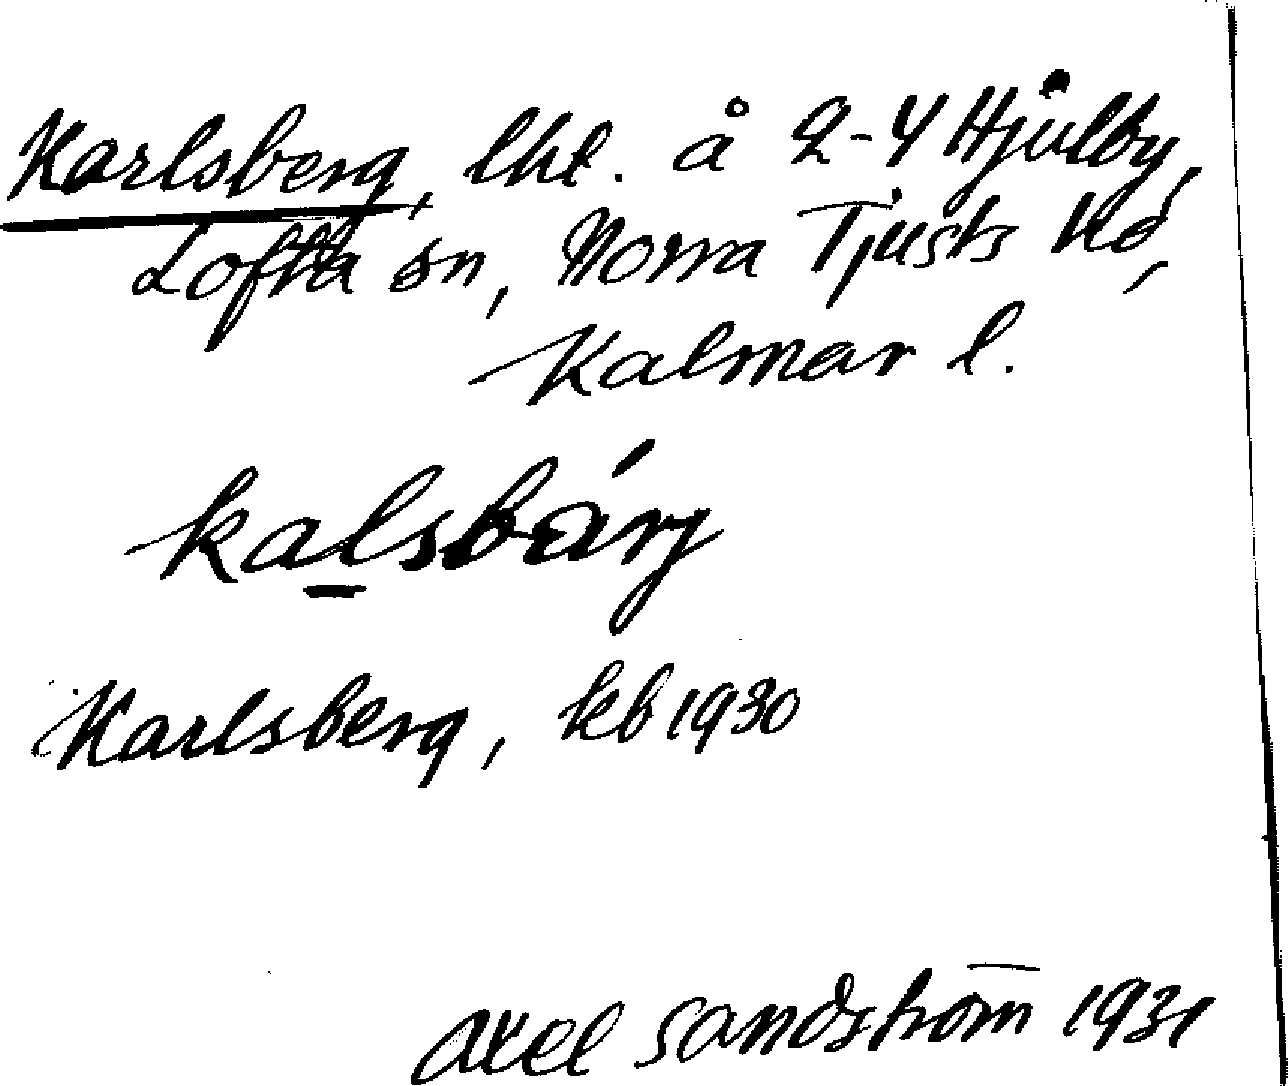 Karlsberg, lht. å 2-4 Hjulby,
Lofta sn, Norra Tjusts hd,
Kalmar l.
kalsbárj
Karlsberg, kb 1930
Axel Sandström 1931